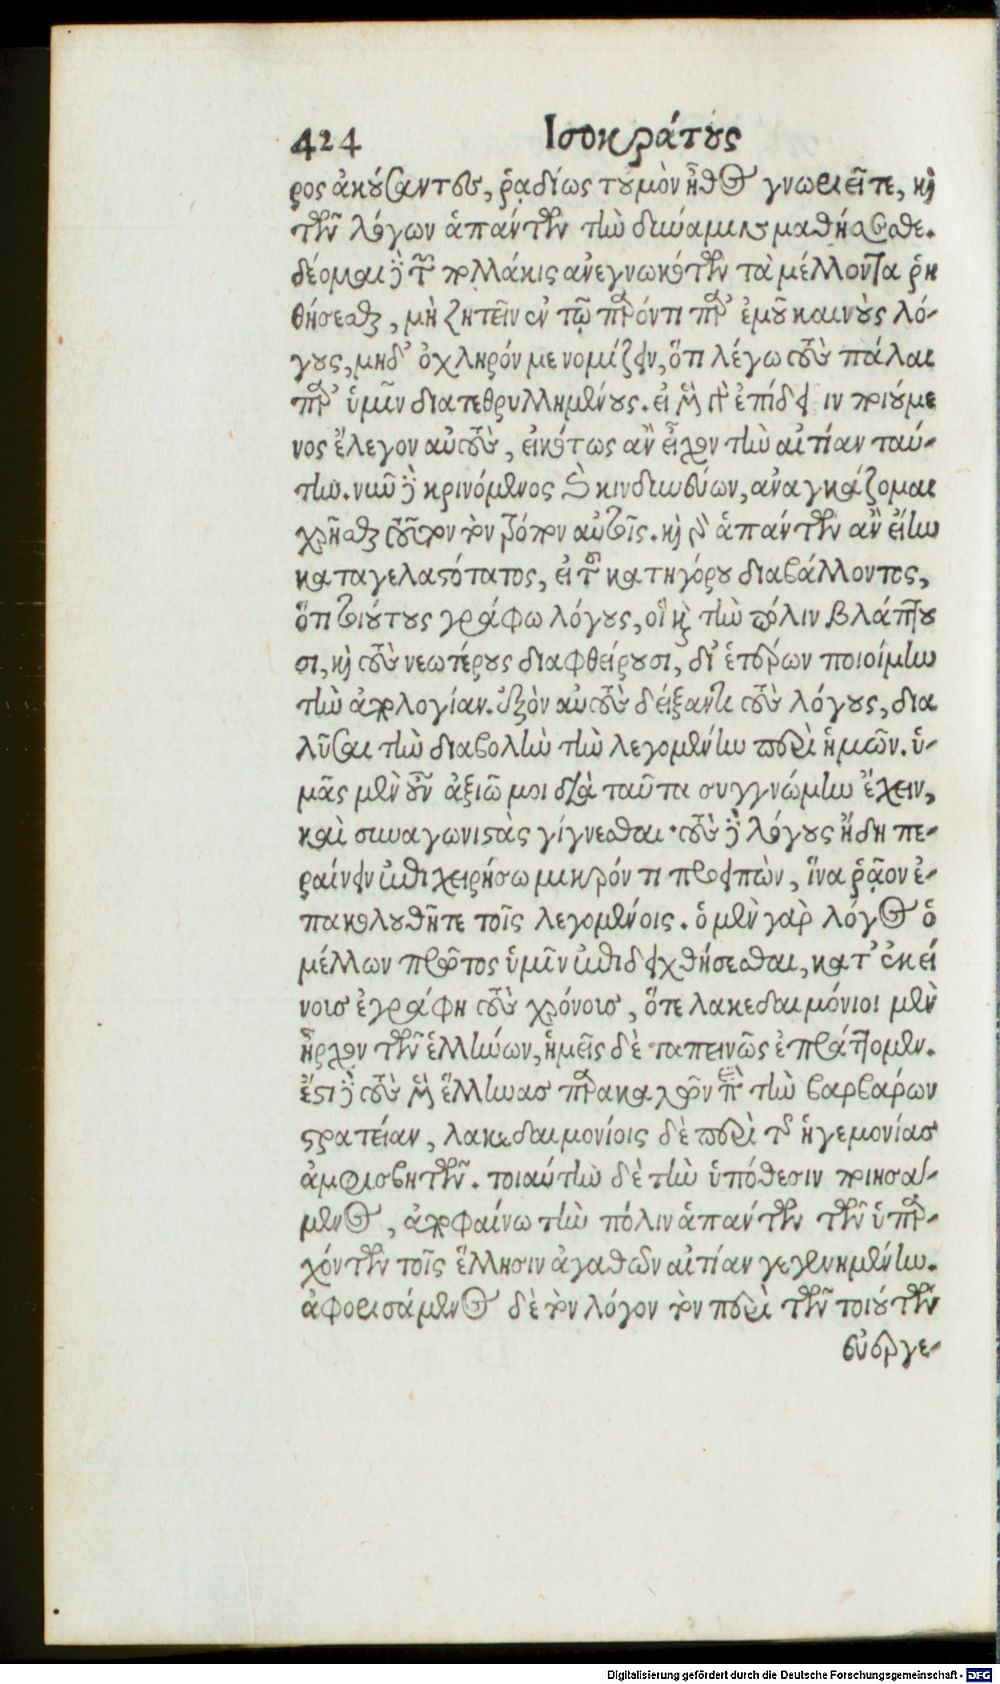 424 Ισοκράτους
ρος ἀκούσαντες, ῥᾳδίως τοὐμὸν ἦθος γνωριεῖτε, καὶ
τῶν λόγων ἁπάντων τὴν δύναμιν μαθήσεσθε.
δέομαι δὲ τῶν πολλάκις ἀνεγνωκότων τὰ μέλλοντα ῥη
θήσεσθαι, μὴ ζητεῖν ἐν τῷ παρόντι παρ' ἐμοῦ καινοὺς λό-
γους, μηδ' ὀχληρόν με νομίζειν, ὅτι λέγω τοὺς πάλαι
παρ' ὑμῖν διατεθρυλλημένους. εἰ μὲν γὰρ ἐπίδειξιν ποιούμε
νος ἔλεγον αὐτοὺς, εἰκότως ἂν εἶχον τὴν αἰτίαν ταύ-
την. νῦν δὲ κρινόμενος καὶ κινδυνεύων, ἀναγκάζομαι
χρῆσθαι τοῦτον τὸν τρόπον αὐτοῖς. καὶ γὰρ ἁπάντων ἂν εἴην
καταγελαστότατος, εἰ τοῦ κατηγόρου διαβάλλοντος,
ὅτι τοιούτους γράφω λόγους, οἳ καὶ τὴν πόλιν βλάπτου
σι, καὶ τοὺς νεωτέρους διαφθείρουσι, δι' ἑτέρων ποιοίμην
τὴν ἀπολογίαν. ἐξὸν αὐτοὺς δείξαντα τοὺς λόγους, δια
λῦσαι τὴν διαβολὴν τὴν λεγομένην περὶ ἡμῶν. ὑ-
μᾶς μὲν οὖν ἀξιῶ μοι διὰ ταῦτα συγγνώμην ἔχειν,
καὶ συναγωνιστὰς γίγνεσθαι· τοὺς δὲ λόγους ἤδη πε-
ραίνειν ἐπιχειρήσω μικρόν τι προειπὼν, ἵνα ῥᾷον ἐ-
πακολουθῆτε τοῖς λεγομένοις. ὁ μὲν γὰρ λόγος ὁ
μέλλων πρῶτος ὑμῖν ἐπιδειχθήσεσθαι, κατ' ἐκεί
νους ἐγράφη τοὺς χρόνους, ὅτε λακεδαιμόνιοι μὲν
ἦρχον τῶν ἑλλήνων, ἡμεῖς δὲ ταπεινῶς ἐπράττομεν.
ἔστι δὲ τοὺς μὲν ἕλληνας παρακαλῶν ἐπὶ τὴν βαρβάρων
στρατείαν, λακεδαιμονίοις δὲ περὶ τῆς ἡγεμονίας
ἀμφισβητῶν. τοιαύτην δὲ τὴν ὑπόθεσιν ποιησά-
μενος, ἀποφαίνω τὴν πόλιν ἁπάντων τῶν ὑπαρ-
χόντων τοῖς ἕλλησιν ἀγαθῶν αἰτίαν γεγενημένην.
ἀφορισάμενος δὲ τὸν λόγον τὸν περὶ τῶν τοιούτων
εὐεργε-
Digitalisierung gefördert durch die Deutsche Forschungsgemeinschaft - DFG